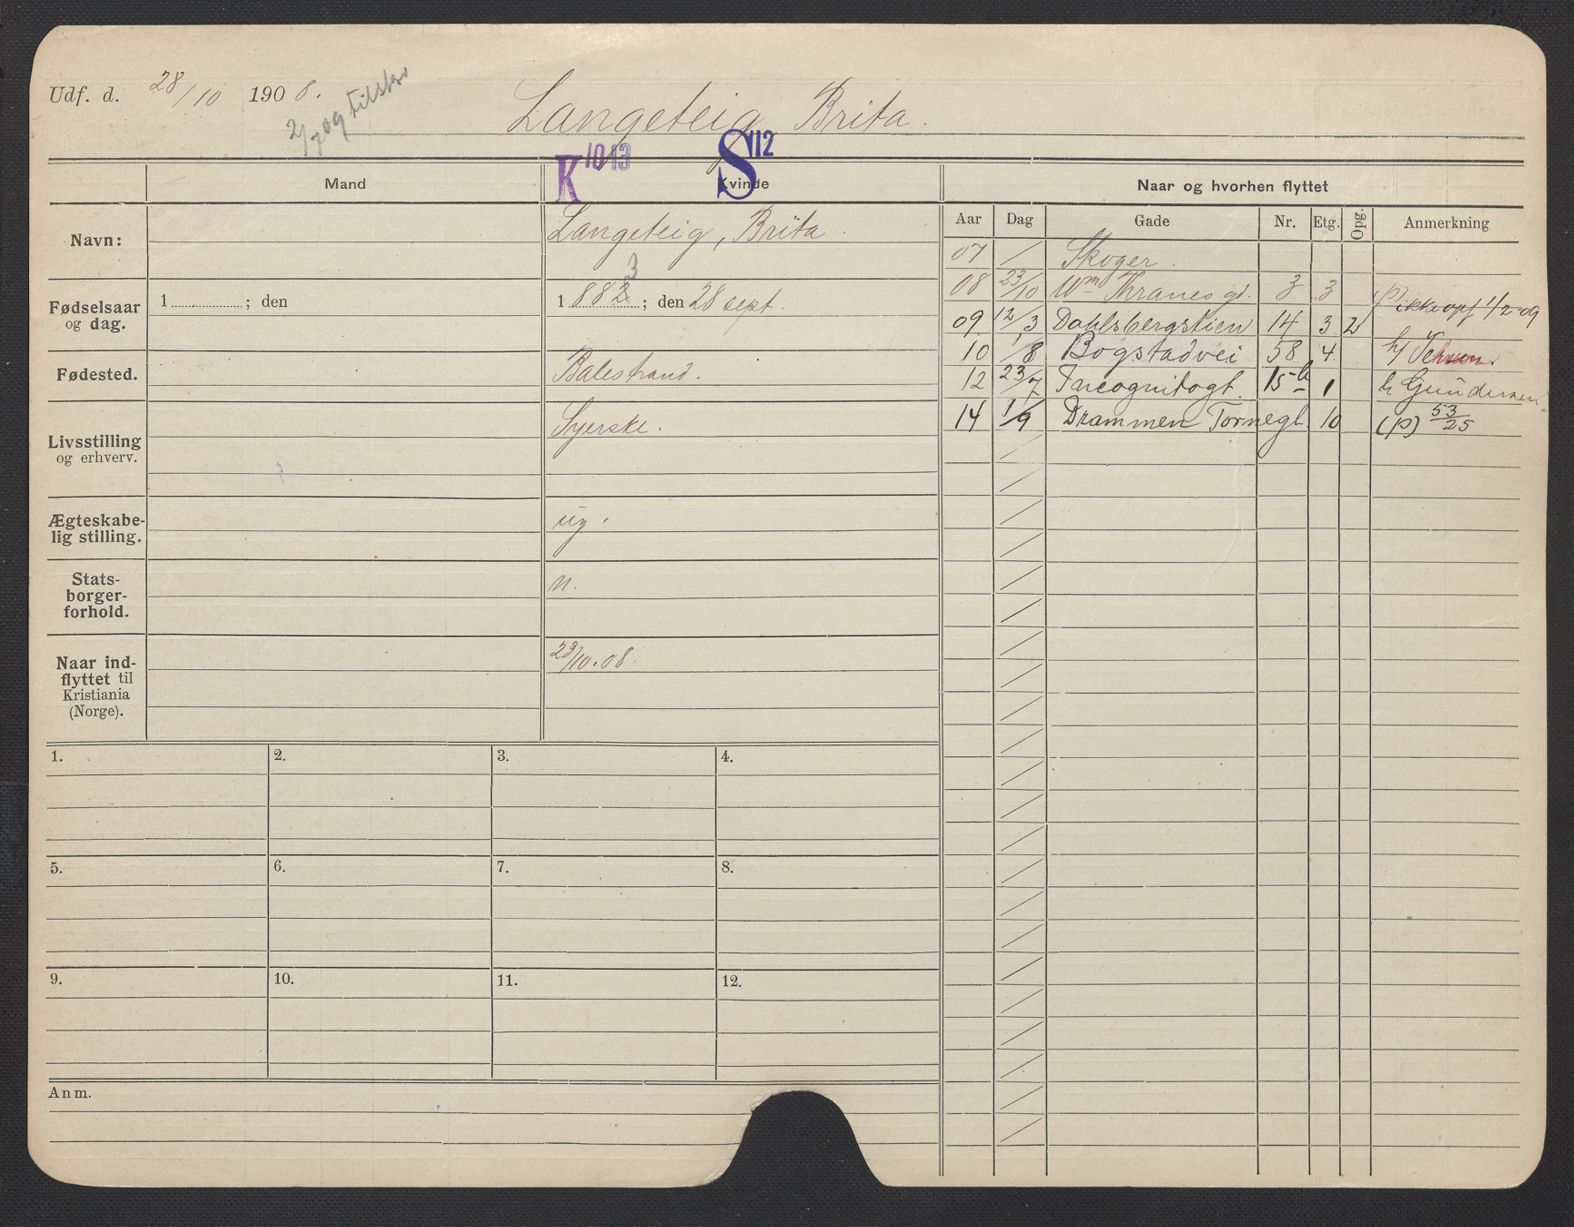 Udf. d. 28/10 1908.
Langeteig Brita.
K 10 13 S 12
Mand Kvinde Naar og hvorhen flyttet
Aar Dag Gade Nr. Etg. Opg. Anmerkning
Navn: Langeteig, Brita.
Fødselsaar og dag. 1 ; den 1 882 3 ; den 28 sept.
Fødested. Balestrand.
Livsstilling og erhverv. Syerske.
Ægteskabe-
lig stilling. ug.
Stats-
borger-
forhold. n.
Naar ind-
flyttet til
Kristiania
(Norge). 23/10.08.
07 / Skoger
08 23/10 Wm Thranes gd. 3 3 (p) ikke opf 1/2 09
09 12/3 Dahlsbergstien 14 3 2
10 1/8 Bogstadvei 58 4 h/
12 23/7 Incognitogt. 15 b 1 h Gundersen
14 1/9 Drammen Tornegt 10 (p) 53/25
1. 2. 3. 4.
5. 6. 7. 8.
9. 10. 11. 12.
Anm.